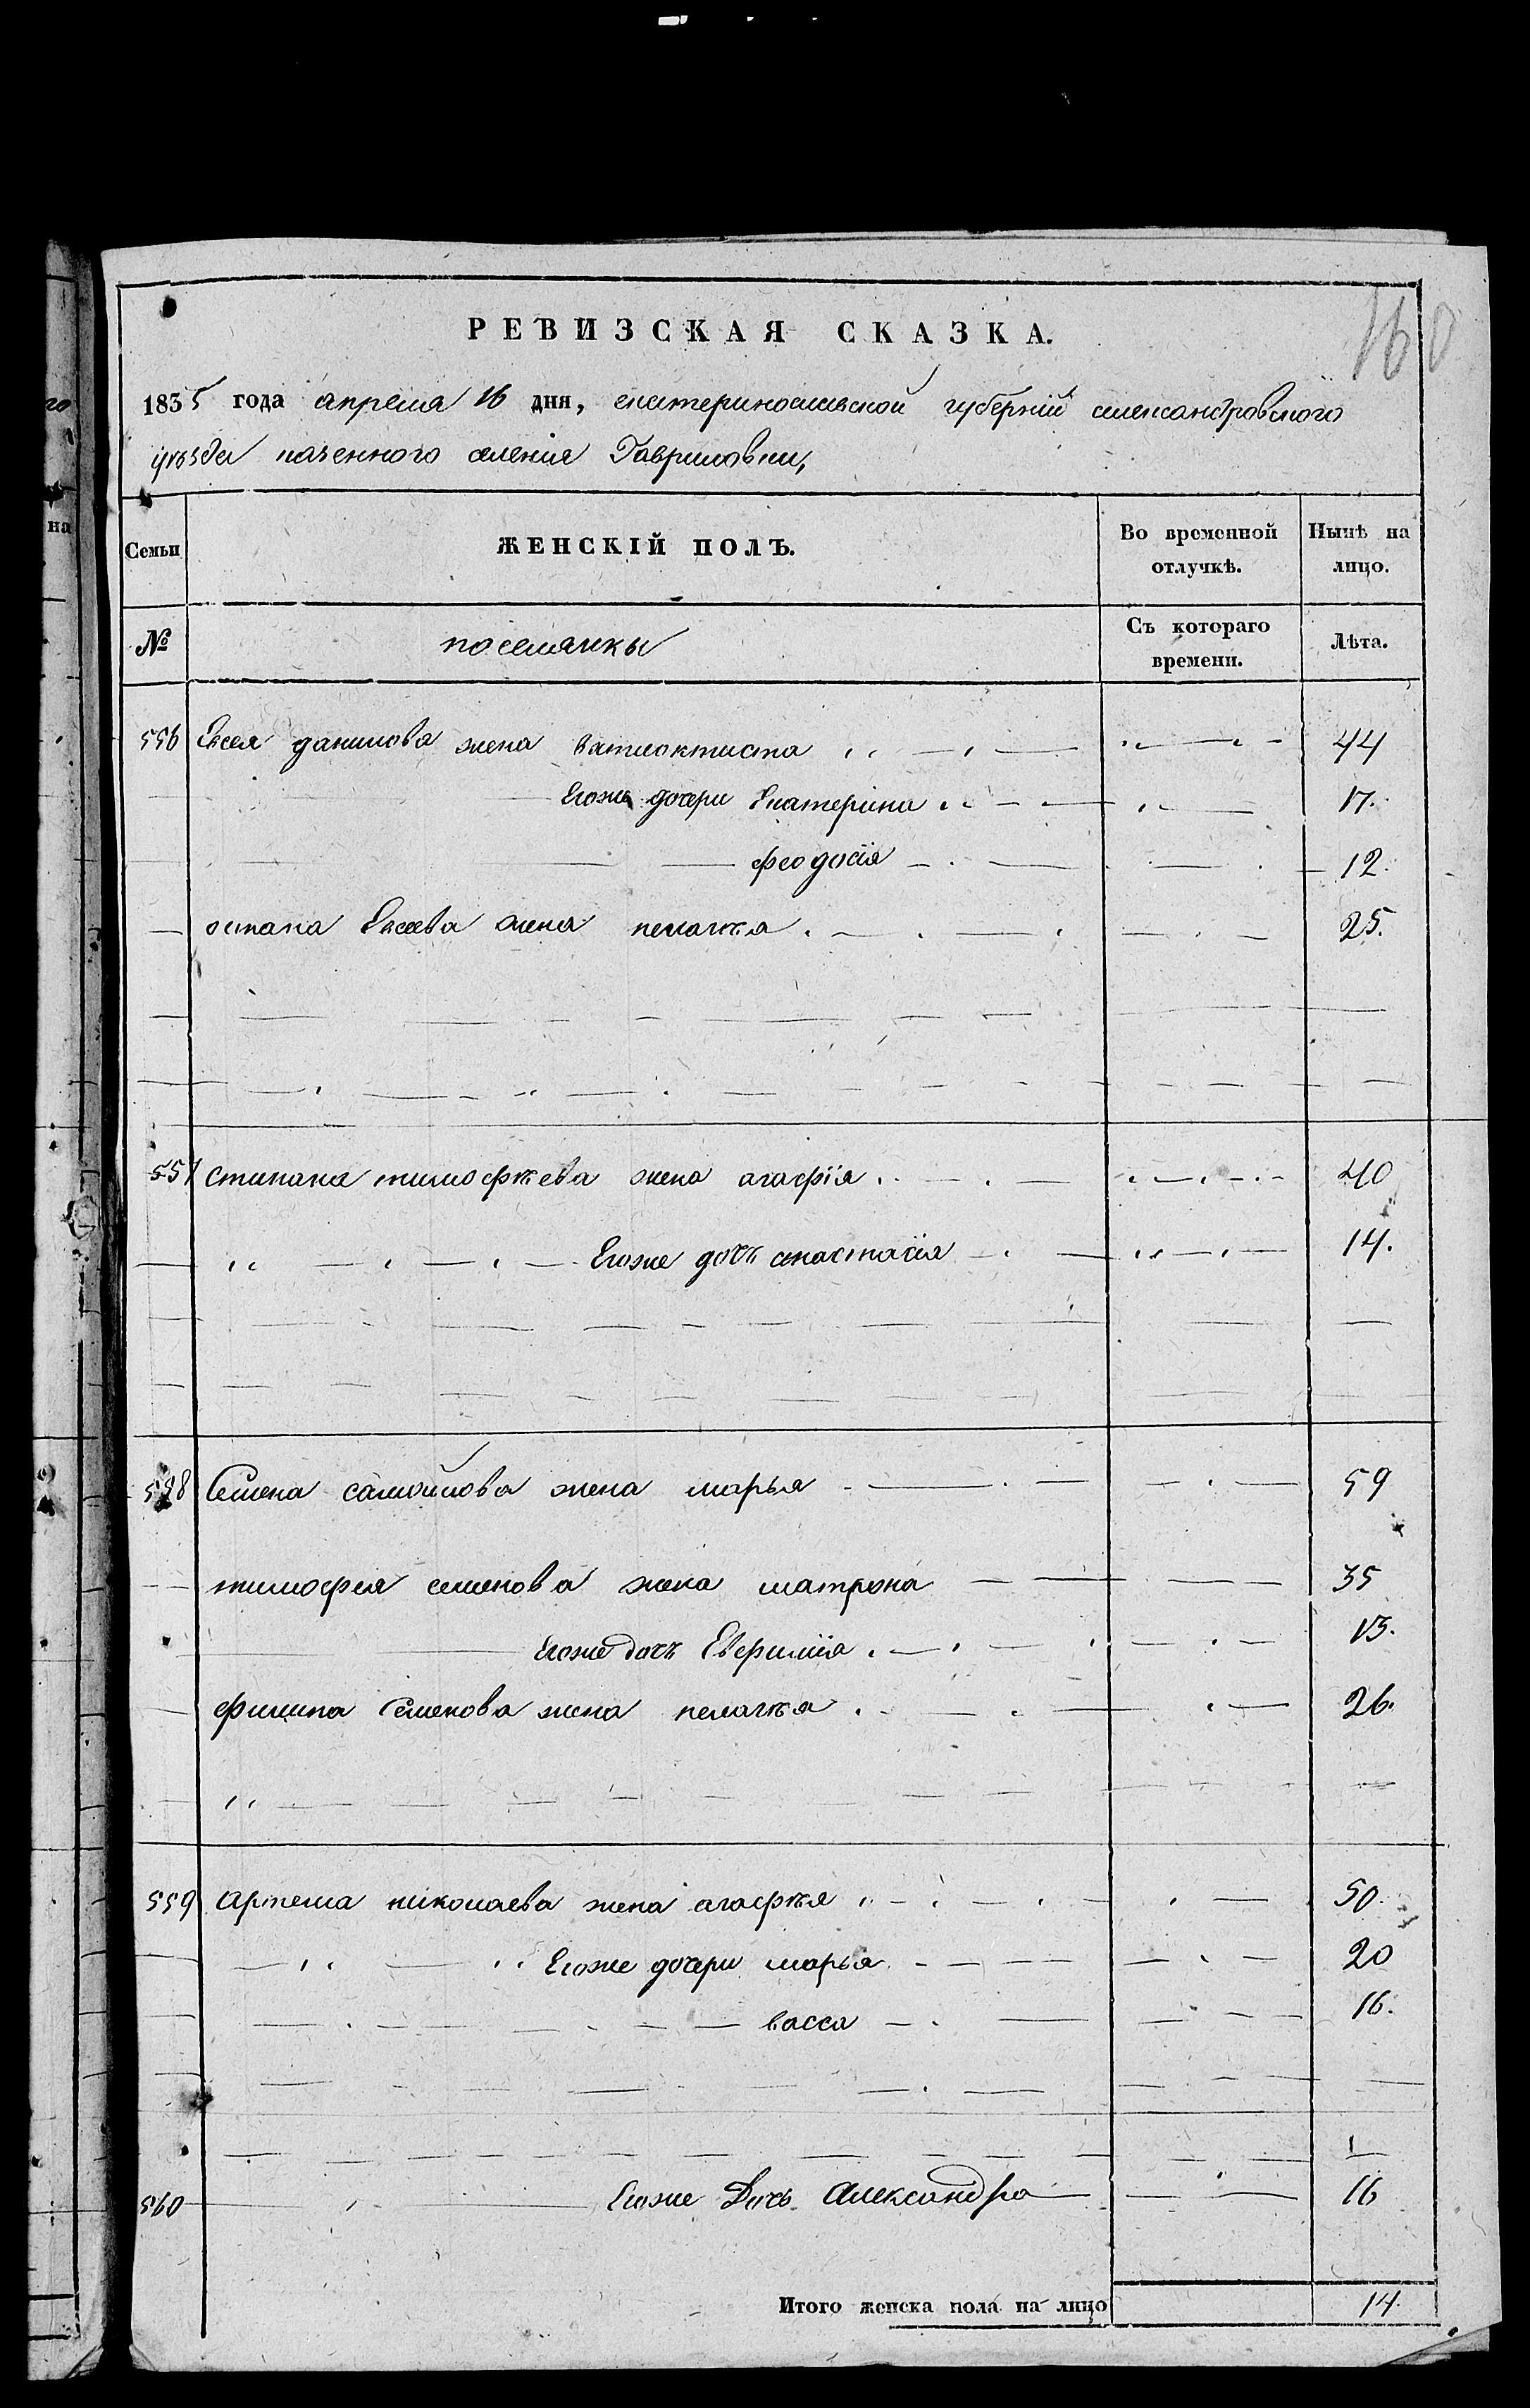 160
РЕВИЗСКАЯ СКАЗКА.
1835 года апреля 16 дня, екатеринославской губернiи александровского
уѣзда казенного селенiя Гавриловки,
Семьи
ЖЕНСКІЙ ПОЛЪ.
Во временной отлучкѣ.
Нынѣ на лицо.
№
поселянки
Съ котораго времени.
Лѣта.
556 Евсея данилова жена 44
Егоже дочери Екатерина 17.
феодосiя 12.
остапа Евсеева жена пелагѣя 25.
557 степана тимофѣева жена агафiя 40
Егоже дочь анастасiя 14.
558 Семена самойлова жена марья 59
тимофея семенова жена матрона 35
Егоже дочь Евфимiя 13.
филипа Семенова жена пелагѣя 26.
559 Артема николаева жена агафѣя 50.
Егоже дочери марья 20
васса 16.
560 Егоже Дочь Александра 16
Итого женска пола на лицо 14.
го
на